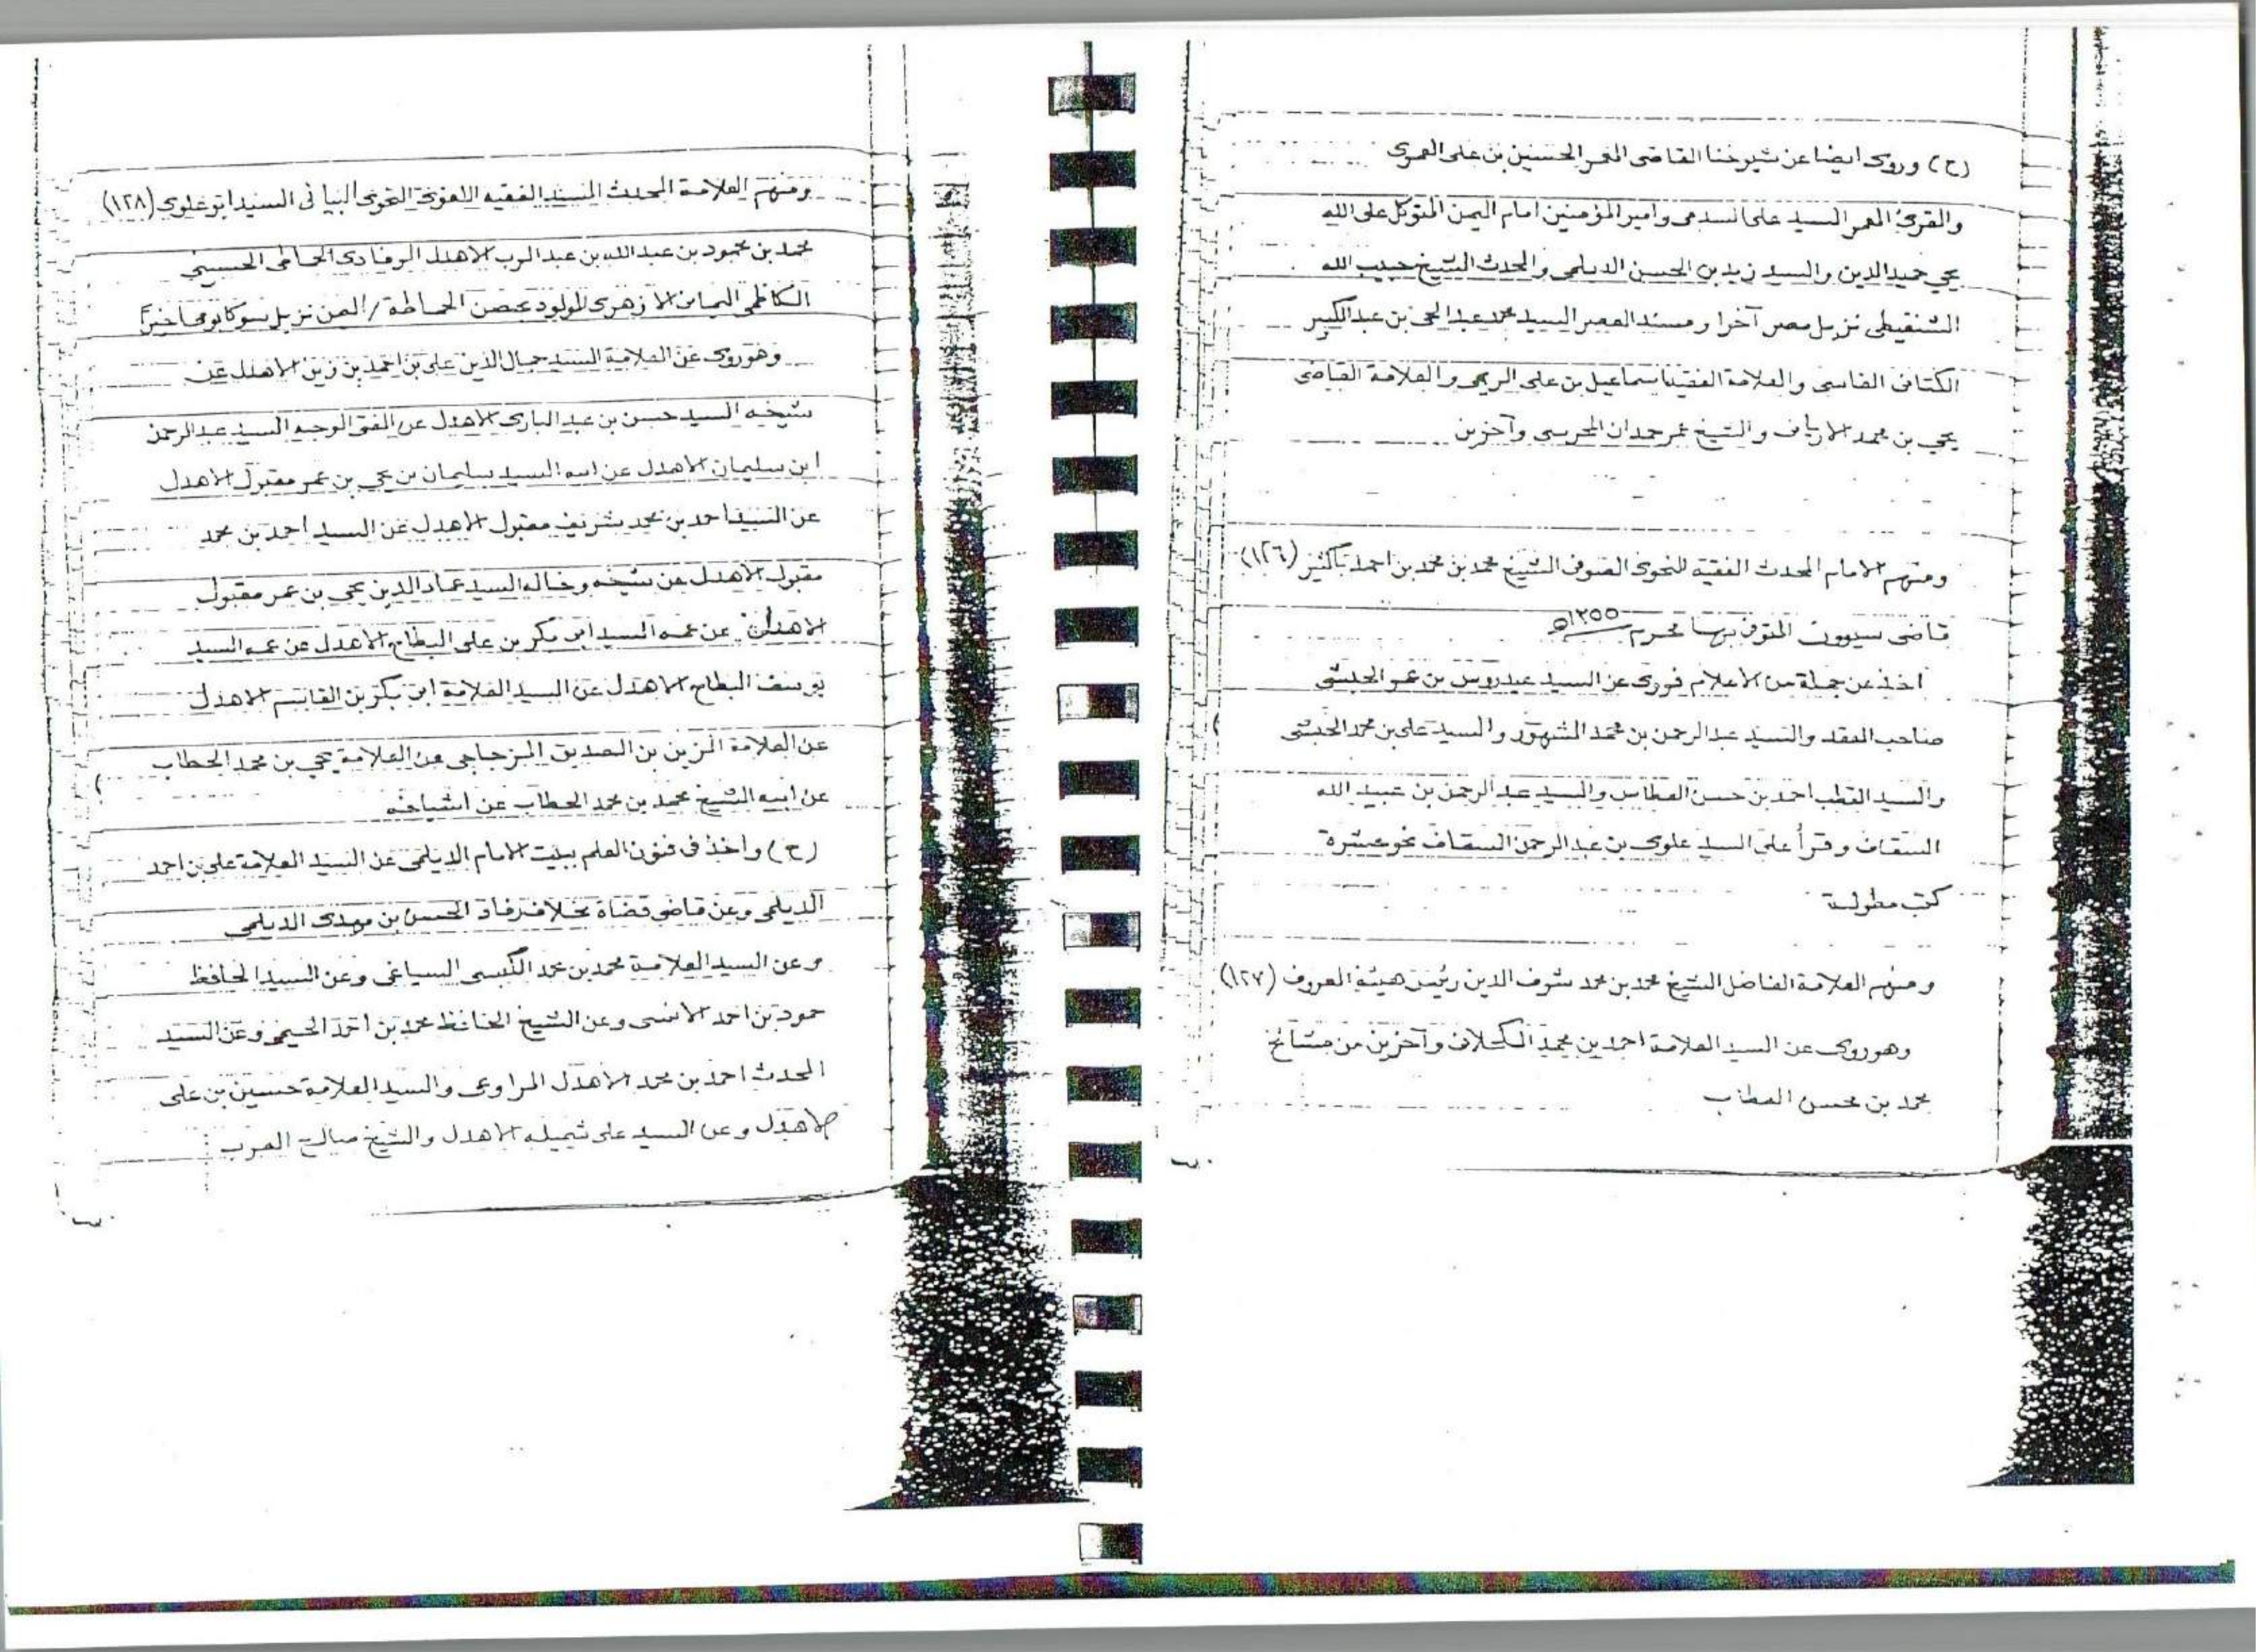 (ح) وروى ايضا عن شيوخنا القاضى المعمر الحسين بن على العمرى
والمقرئ المعمر السيد على السدمى وامير المؤمنين امام اليمن المتوكل على الله
يحي حميد الدين والسيد زيد بن الحسن الديلمى والمحدث الشيخ حبيب الله
الشنقيطى نزيل مصر آخرا ومسند العصر السيد محمد عبد الحى بن عبد الكبير
الكتانى الفاسى والعلامة الفقيه اسماعيل بن على الريمى والعلامة القاضى
يحي بن محمد الاريانى والشيخ عمر حمدان المحرسى وآخرين
ومنهم الامام المحدث الفقيه النحوى الصوفى الشيخ محمد بن محمد بن احمد باكثير (١٢٦)
قاضى سيوون المتوفى بها محرم ١٣٥٥ه
اخذ عن جملة من الاعلام فروى عن السيد عيدروس بن عمر الحبشى
صاحب العقد والسيد عبد الرحمن بن محمد المشهور والسيد على بن محمد الحبشى
والسيد القطب احمد بن حسن العطاس والسيد عبد الرحمن بن عبيد الله
السقاف وقرأ على السيد علوى بن عبد الرحمن السقاف نحو عشرة
كتب مطولة
ومنهم العلامة الفاضل الشيخ محمد بن محمد شرف الدين رئيس هيئة المعروف (١٢٧)
وهو روى عن السيد العلامة احمد بن محمد الكحلانى وآخرين من مشائخ
محمد بن محسن العطاب
ومنهم العلامة المحدث المسند الفقيه اللغوى النحوى البيانى السيد ابو علوى (١٢٨)
محمد بن محمود بن عبد الله بن عبد الرب الاهدل الرفادى الحماطى الحسينى
الكاظمى اليمانى الازهرى المولود بحصن الحماطة / اليمن نزيل سوكابومى اخيرًا
وهو روى عن العلامة السيد جمال الدين على بن احمد بن زين الاهدل عن
شيخه السيد حسن بن عبد البارى الاهدل عن المفتى الوجيه السيد عبد الرحمن
ابن سليمان الاهدل عن ابيه السيد سليمان بن يحي بن عمر مقبول الاهدل
عن السيد احمد بن محمد شريف مقبول الاهدل عن السيد احمد بن محمد
مقبول الاهدل عن شيخه وخاله السيد عماد الدين يحي بن عمر مقبول
الاهدل عن عمه السيد ابى بكر بن على البطاح الاهدل عن عمه السيد
يوسف البطاح الاهدل عن السيد العلامة ابى بكر بن القاسم الاهدل
عن العلامة الزين بن الصديق المزجاجى عن العلامة يحي بن محمد الحطاب
عن ابيه الشيخ محمد بن محمد الحطاب عن اشياخه
(ح) واخذ فى فنون العلم ببيت الامام الديلمى عن السيد العلامة على بن احمد
الديلمى وعن قاضى قضاة مخلاف رفاد الحسن بن مهدى الديلمى
وعن السيد العلامة محمد بن محمد الكبسى السياغى وعن السيد الحافظ
حمود بن احمد الانسى وعن الشيخ الحافظ محمد بن احمد وعن السيد
المحدث احمد بن محمد الاهدل المراوعى والسيد العلامة حسين بن على
الاهدل وعن السيد على شميله الاهدل والشيخ صالح العرب